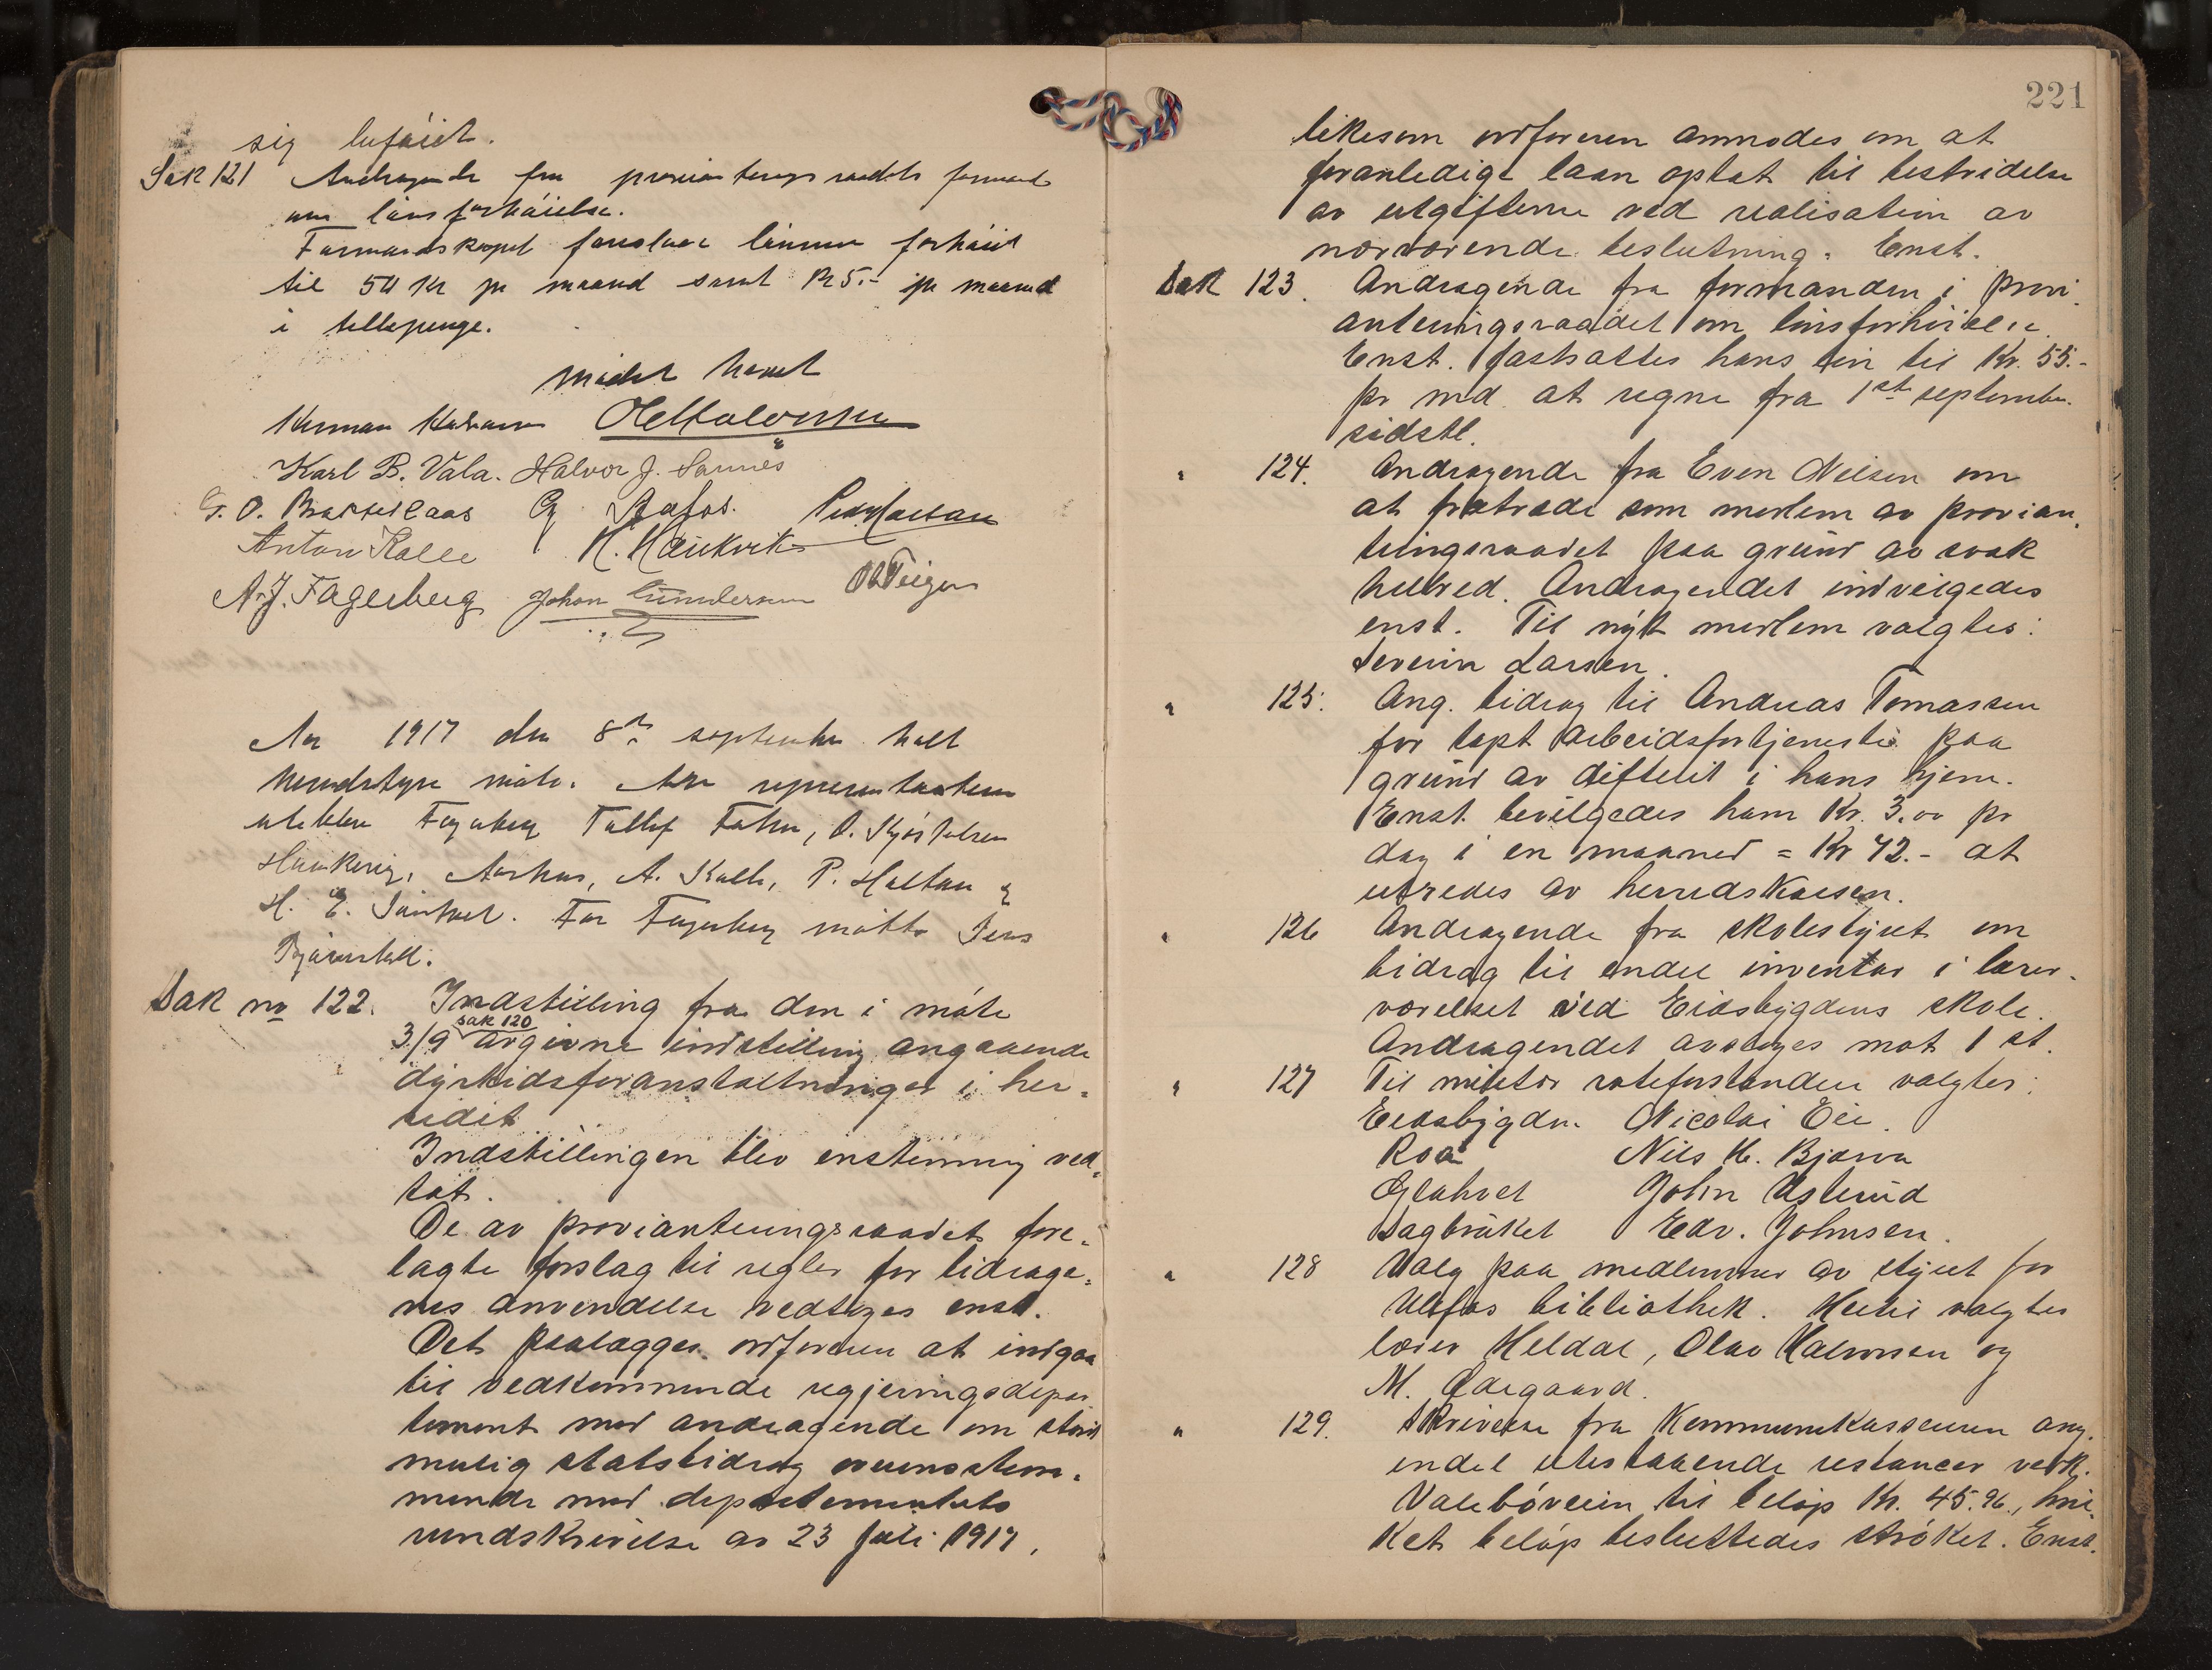 sig beføiet.
Sak 121 Andragende fra provianteringsraadets formand
om lønsforhøielse.
Formandskapet foreslaar lønnen forhøiet
til 50 Kr pr maaned samt Kr 5.- pr maaned
i tellepenge.
Møtet hævet
Herman OHalvorsen
Karl B. Vala. Halvor J. Sannes
G. O. Brattestaas Aafos. Per Haltan
Anton Kalle H. Haukvik
A. J. Fagerberg Johan Gundersen Teigen
Aar 1917 den 8de september holdt
herredstyre møte. Av repræsentanterne
uteblev Fagerberg Tollef O. Kjøs
Aarhus, A. Kalle, P. Haltan og
H. E. For Fagerberg møtte Jens
Bjørnstad.
Sak no 122. Indstilling fra den i møte
3/9 sak 120 avgivne indstilling angaaende
dyrtidsforanstaltninger i her-
redet
Indstillingen blev enstemmig ved-
tat.
De av provianteringsraadet fore-
lagte forslag til regler for bidrage-
nes anvendelse vedtoges enst.
Det paalægges ordføreren at indgaa
til vedkommende regjeringsdepar
tement med andragende om størst
mulig statsbidrag overensstem-
mende med departementets
rundskrivelse av 23 juli 1917,
221
likesom ordføreren anmodes om at
foranledige laan optat til bestridelse
av utgifterne ved realisation av
nærværende beslutning. Enst.
Sak 123. Andragende fra formanden i provi-
anteringsraadet om lønsforhøielse.
Enst. fastsattes hans løn til Kr. 55.-
pr md. at regne fra 1ste september
sidstl.
" 124. Andragende fra Even Nilsen om
at fratræde som medlem av provian-
teringsraadet paa grund av svak
helbred. Andragendet indvilgedes
enst. Til nyt medlem valgtes:
Severin Larsen.
" 125. Ang. bidrag til Andreas Tomassen
for tapt arbeidsfortjeneste paa
grund av difterit i hans hjem.
Enst. bevilgedes ham Kr. 3.00 pr
dag i en maaned = Kr 72.- at
utredes av herredskassen.
" 126 Andragende fra skolestyret om
bidrag til endel inventar i lærer-
værelset ved Eidsbygdens skole.
Andragendet avsloges mot 1 st.
" 127 Til militær roteforstandere valgtes:
Eidsbygdn. Nicolai Eie.
Roa Nils H. Bjørva
Glahvet John Aslerud
Sagbruket Edv. Johnsen.
" 128 Valg paa medlemmer av styret for
Ulefos bibliothek. Hertil valgtes
lærer Heldal, Olav Halvorsen og
M. Ødegaard.
" 129. Skrivelse fra Kommunekassereren ang.
endel utestaaende restancer vedk.
Valebøveien til beløp Kr. 45.96., hvil-
ket beløp besluttedes strøket. Enst.